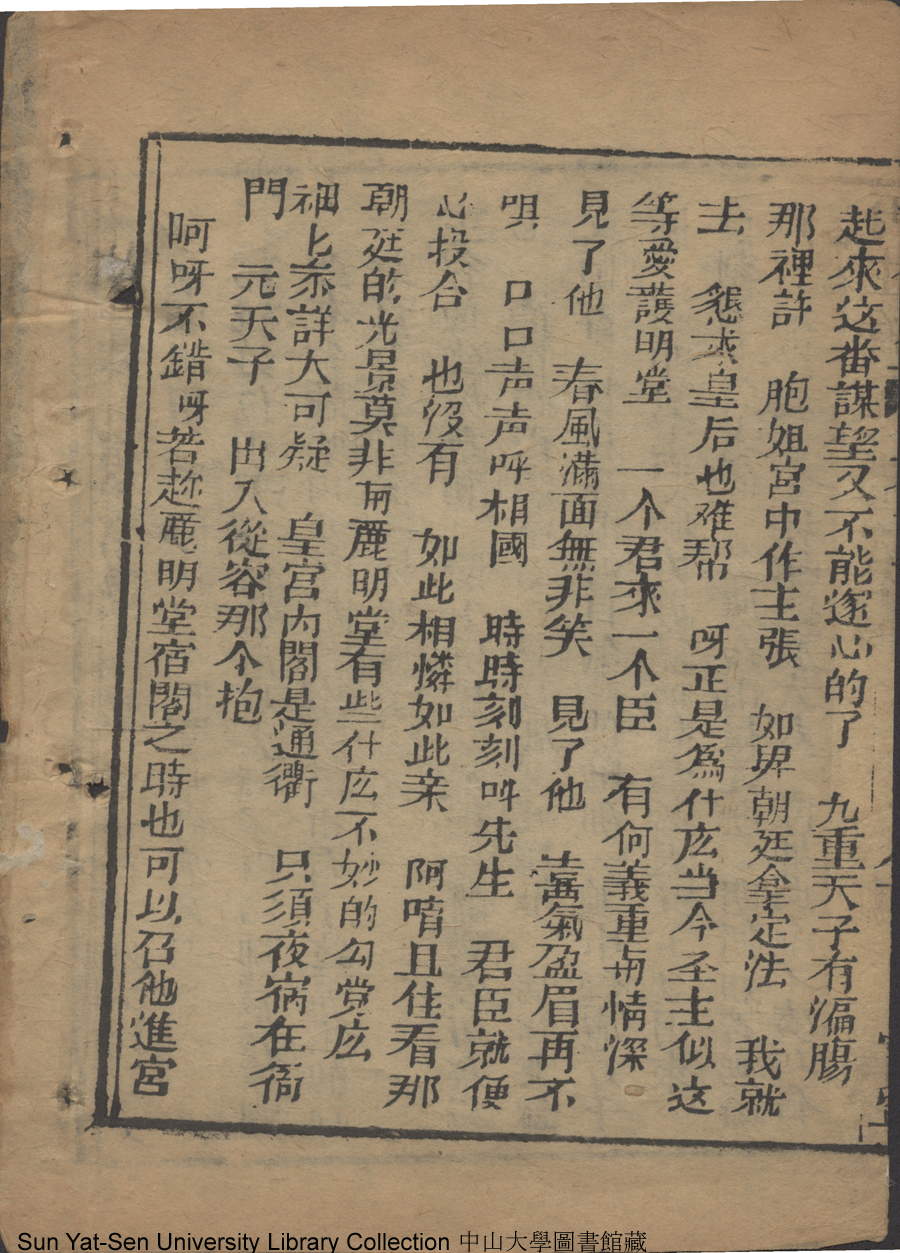 起來这番謀望又不能遂心的了　九重天子有偏腸
那裡許　胞姐宮中作主張　如果朝廷拿定法　我就
去　懇求皇后也难帮　呀正是為什庅当今圣主似这
等愛護明堂　一个君來一个臣　有何義重与情深
見了他　春風滿面無非笑　見了他　喜氣盈眉再不
嗔　口口声声呼相國　時時刻刻叫先生　君臣就便
心投合　也沒有　如此相憐如此亲　阿唷且住看那
朝廷的光景莫非与麗明堂有些什庅不妙的勾党庅
細匕参詳大可疑　皇宫内閣是通衢　只須夜宿在衙
門　元天子　出入從容那个抱
呵呀不錯呀若趂麗明堂宿閣之時也可以召他進宮
Sun Yat-Sen University Library Collection 中山大學圖書館藏